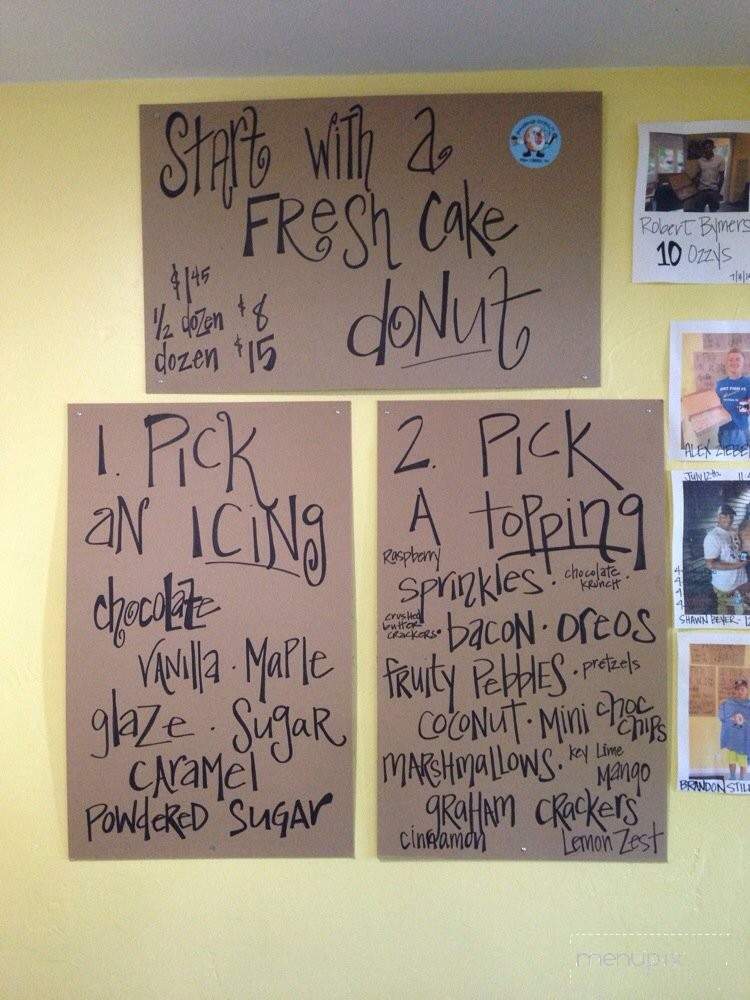 Start with a
Fresh cake
donut
$1.45
1/2 dozen $8
dozen $15
1. Pick
an icing
chocolate
vanilla · maple
glaze · sugar
caramel
powdered sugar
2. Pick
A topping
Raspberry
sprinkles · chocolate krunch ·
crushed butter crackers · bacon · oreos
fruity pebbles · pretzels
coconut · mini choc chips
marshmallows · key lime
mango
graham crackers
cinnamon
Lemon Zest
Robert Bymers
10 Ozzys
ALEX
July 12th
SHAWN BEYER
BRANDON
menupix